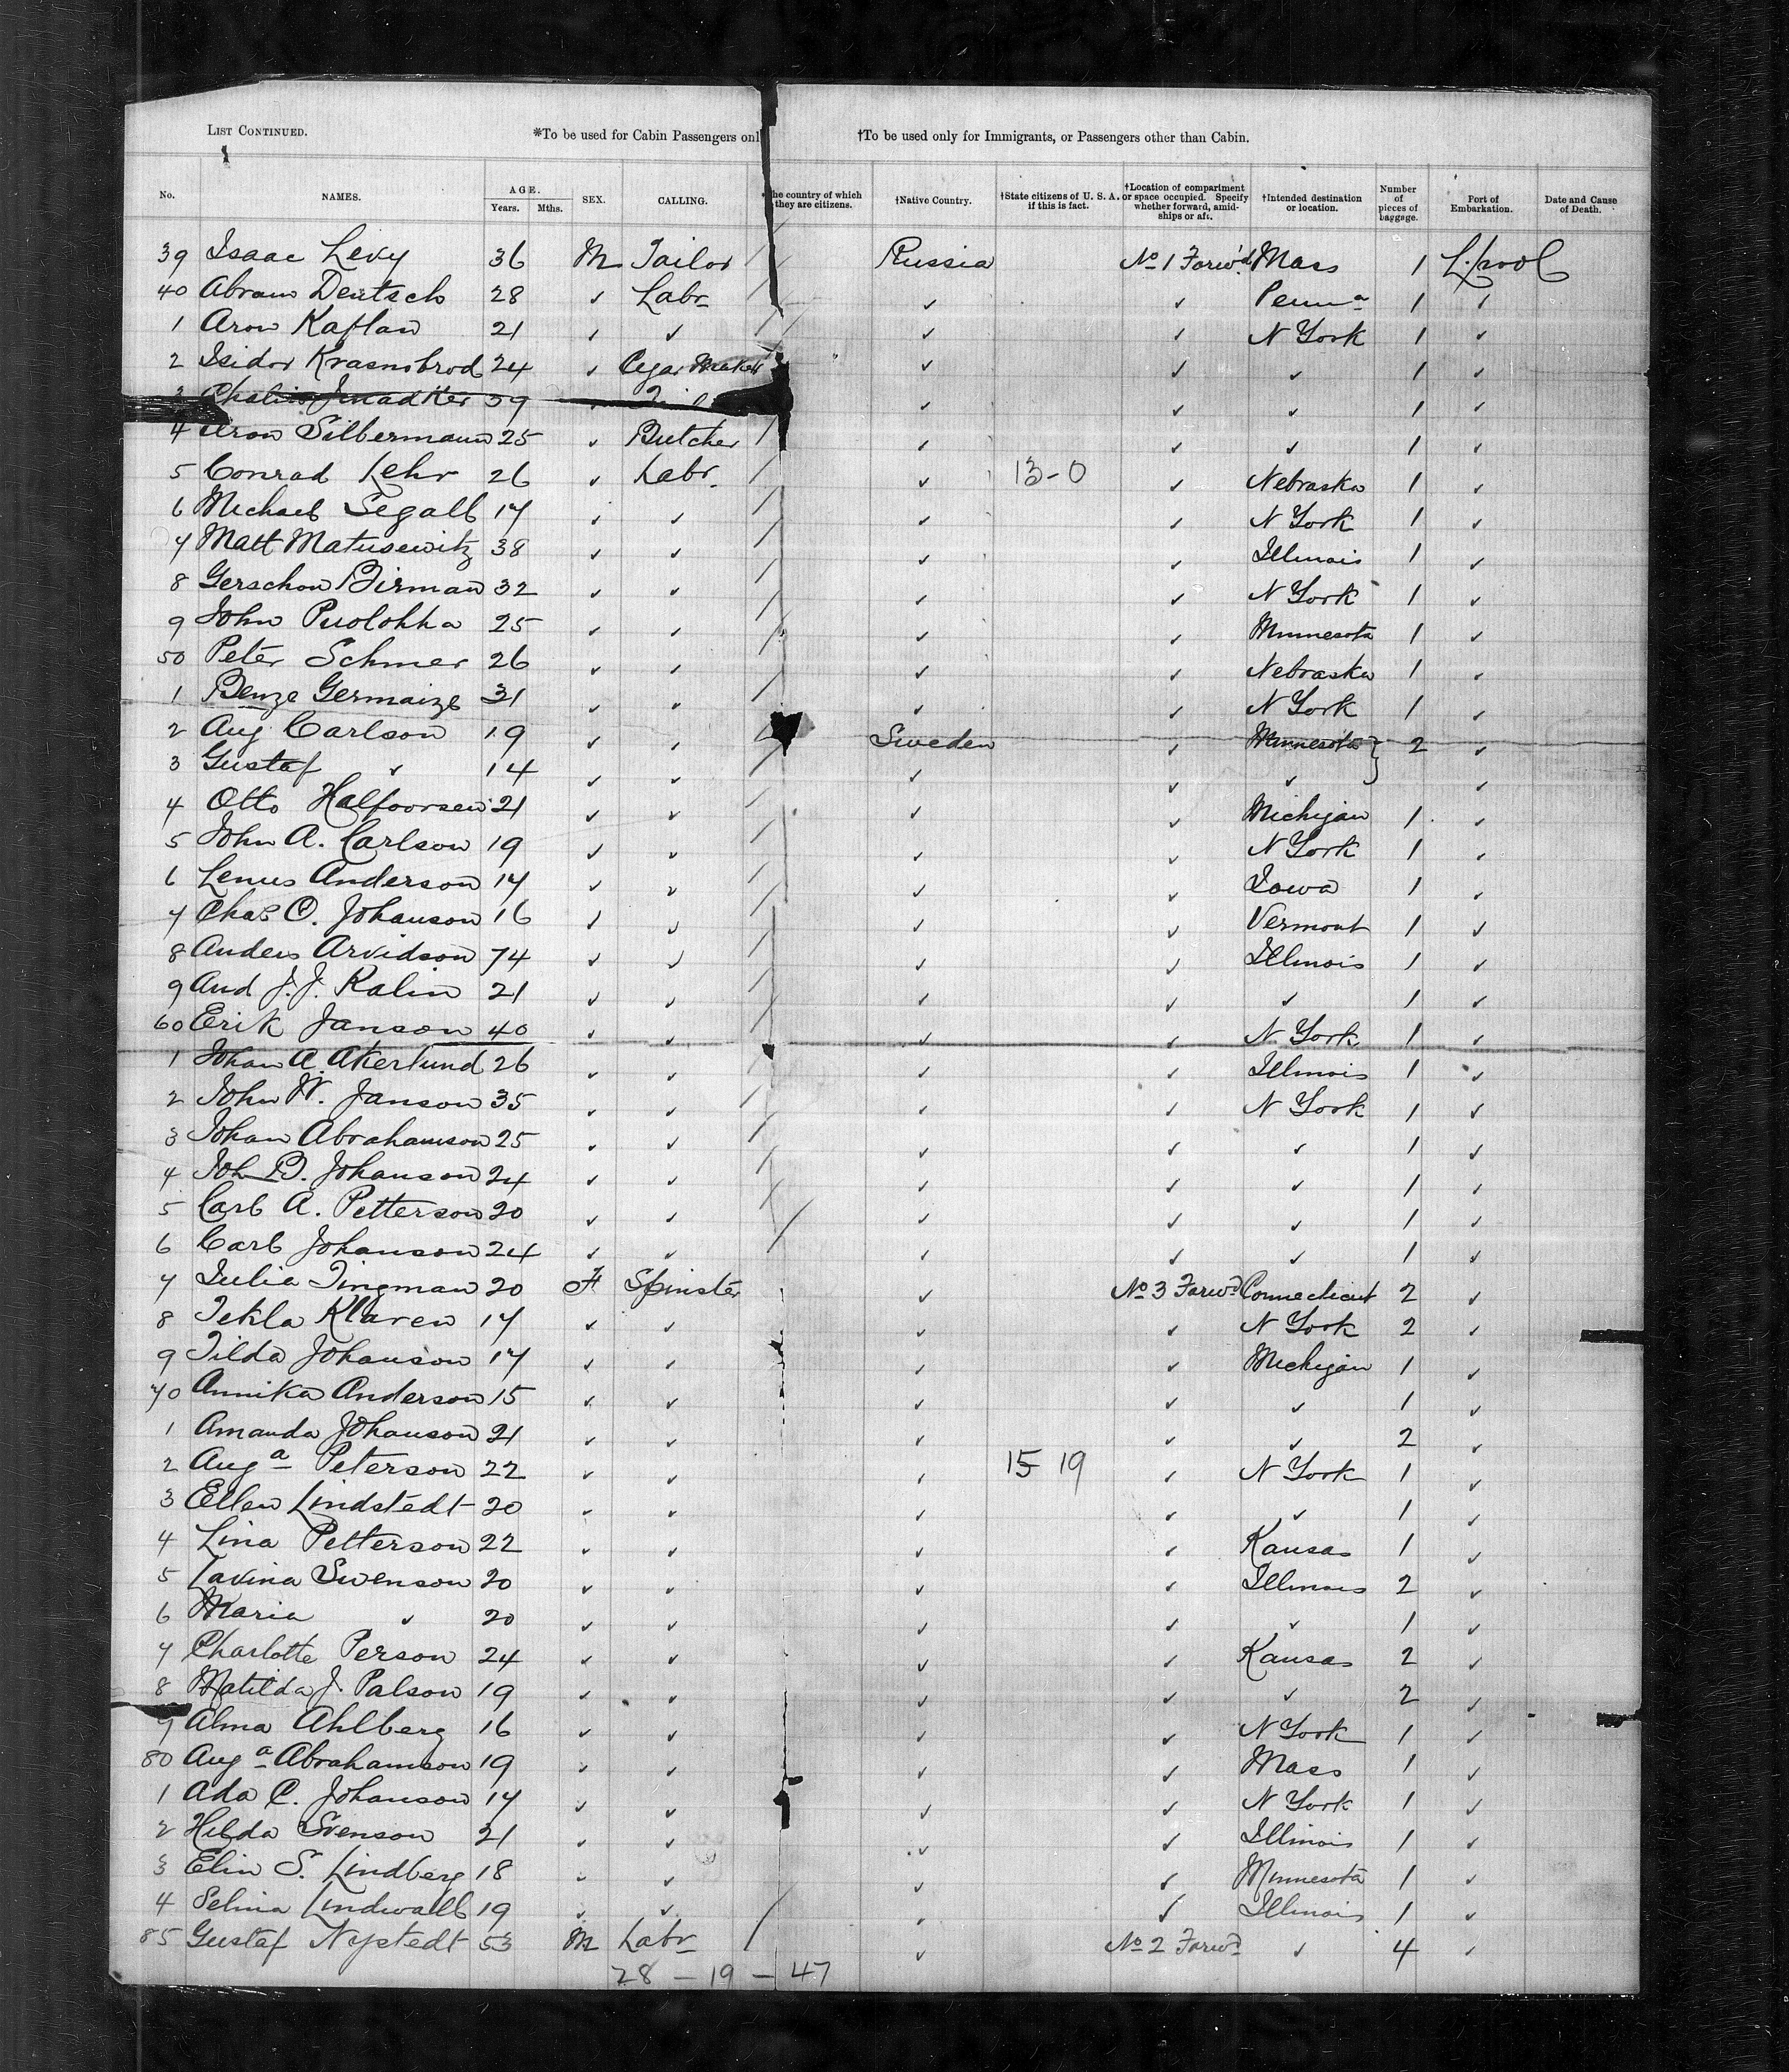 LIST CONTINUED. *To be used for Cabin Passengers onl †To be used only for Immigrants, or Passengers other than Cabin.
No. NAMES. AGE. Years. Mths. SEX. CALLING. he country of which they are citizens. †Native Country. †State citizens of U. S. A. if this is fact. †Location of compartment or space occupied. Specify whether forward, amidships or aft. †Intended destination or location. Number of pieces of baggage. Port of Embarkation. Date and Cause of Death.
39 Isaac Levy 36 M Tailor / Russia No 1 Forwd. Mass 1 L.pool
40 Abram Deutsch 28 ✓ Labr / ✓ ✓ Penna 1 ✓
1 Aron Kaplan 21 ✓ ✓ / ✓ ✓ N York 1 ✓
2 Isidor Krasnobrod 24 ✓ Cigar Maker ✓ ✓ ✓ 1 ✓
3 39 ✓ ✓ ✓ ✓ 1 ✓
4 Aron Silbermann 25 ✓ Butcher / ✓ ✓ ✓ 1 ✓
5 Conrad Lehr 26 ✓ Labr. / ✓ 13-0 ✓ Nebraska 1 ✓
6 Michael Segall 17 ✓ ✓ / ✓ ✓ N York 1 ✓
7 Matt Matusewitz 38 ✓ ✓ / ✓ ✓ Illinois 1 ✓
8 Gerschon Birman 32 ✓ ✓ / ✓ ✓ N York 1 ✓
9 John Puolohka 25 ✓ ✓ / ✓ ✓ Minnesota 1 ✓
50 Peter Schmer 26 ✓ ✓ / ✓ ✓ Nebraska 1 ✓
1 Benze Germaize 31 ✓ ✓ / ✓ ✓ N York 1 ✓
2 Aug Carlson 19 ✓ ✓ / Sweden ✓ Minnesota } 2 ✓
3 Gustaf ✓ 14 ✓ ✓ / ✓ ✓ ✓ ✓
4 Otto Halfoorsen 21 ✓ ✓ / ✓ ✓ Michigan 1 ✓
5 John A. Carlson 19 ✓ ✓ / ✓ ✓ N York 1 ✓
6 Lenus Anderson 17 ✓ ✓ / ✓ ✓ Iowa 1 ✓
7 Chas O. Johanson 16 ✓ ✓ / ✓ ✓ Vermont 1 ✓
8 Anders Arvidson 74 ✓ ✓ / ✓ ✓ Illinois 1 ✓
9 And J. J. Kalin 21 ✓ ✓ / ✓ ✓ ✓ 1 ✓
60 Erik Janson 40 ✓ ✓ / ✓ ✓ N York 1 ✓
1 Johan A. Akerlund 26 ✓ ✓ / ✓ ✓ Illinois 1 ✓
2 John W. Janson 35 ✓ ✓ / ✓ ✓ N York 1 ✓
3 Johan Abrahamson 25 ✓ ✓ / ✓ ✓ ✓ 1 ✓
4 Joh B. Johanson 24 ✓ ✓ / ✓ ✓ ✓ 1 ✓
5 Carl A. Petterson 20 ✓ ✓ / ✓ ✓ ✓ 1 ✓
6 Carl Johanson 24 ✓ ✓ / ✓ ✓ ✓ 1 ✓
7 Julia Tingman 20 F Spinster ✓ No 3 Forwd Connecticut 2 ✓
8 Tekla Klaren 17 ✓ ✓ ✓ ✓ N York 2 ✓
9 Tilda Johanson 17 ✓ ✓ ✓ ✓ Michigan 1 ✓
70 Annika Anderson 15 ✓ ✓ ✓ ✓ ✓ 1 ✓
1 Amanda Johanson 21 ✓ ✓ ✓ ✓ ✓ 2 ✓
2 Auga Peterson 22 ✓ ✓ ✓ 15 19 ✓ N York 1 ✓
3 Ellen Lindstedt 20 ✓ ✓ ✓ ✓ ✓ 1 ✓
4 Lina Petterson 22 ✓ ✓ ✓ ✓ Kansas 1 ✓
5 Lavina Swenson 20 ✓ ✓ ✓ ✓ Illinois 2 ✓
6 Maria ✓ 20 ✓ ✓ ✓ ✓ ✓ 1 ✓
7 Charlotte Person 24 ✓ ✓ ✓ ✓ Kansas 2 ✓
8 Matilda J. Palson 19 ✓ ✓ ✓ ✓ ✓ 2 ✓
9 Alma Ahlberg 16 ✓ ✓ ✓ ✓ N York 1 ✓
80 Auga Abrahamson 19 ✓ ✓ ✓ ✓ Mass 1 ✓
1 Ada C. Johanson 17 ✓ ✓ ✓ ✓ N York 1 ✓
2 Hilda Svenson 21 ✓ ✓ ✓ ✓ Illinois 1 ✓
3 Elin S. Lindberg 18 ✓ ✓ ✓ ✓ Minnesota 1 ✓
4 Selma Lindwall 19 ✓ ✓ ✓ ✓ Illinois 1 ✓
85 Gustaf Nystedt 53 M Labr / ✓ No 2 Forwd ✓ 4 ✓
28 - 19 - 47